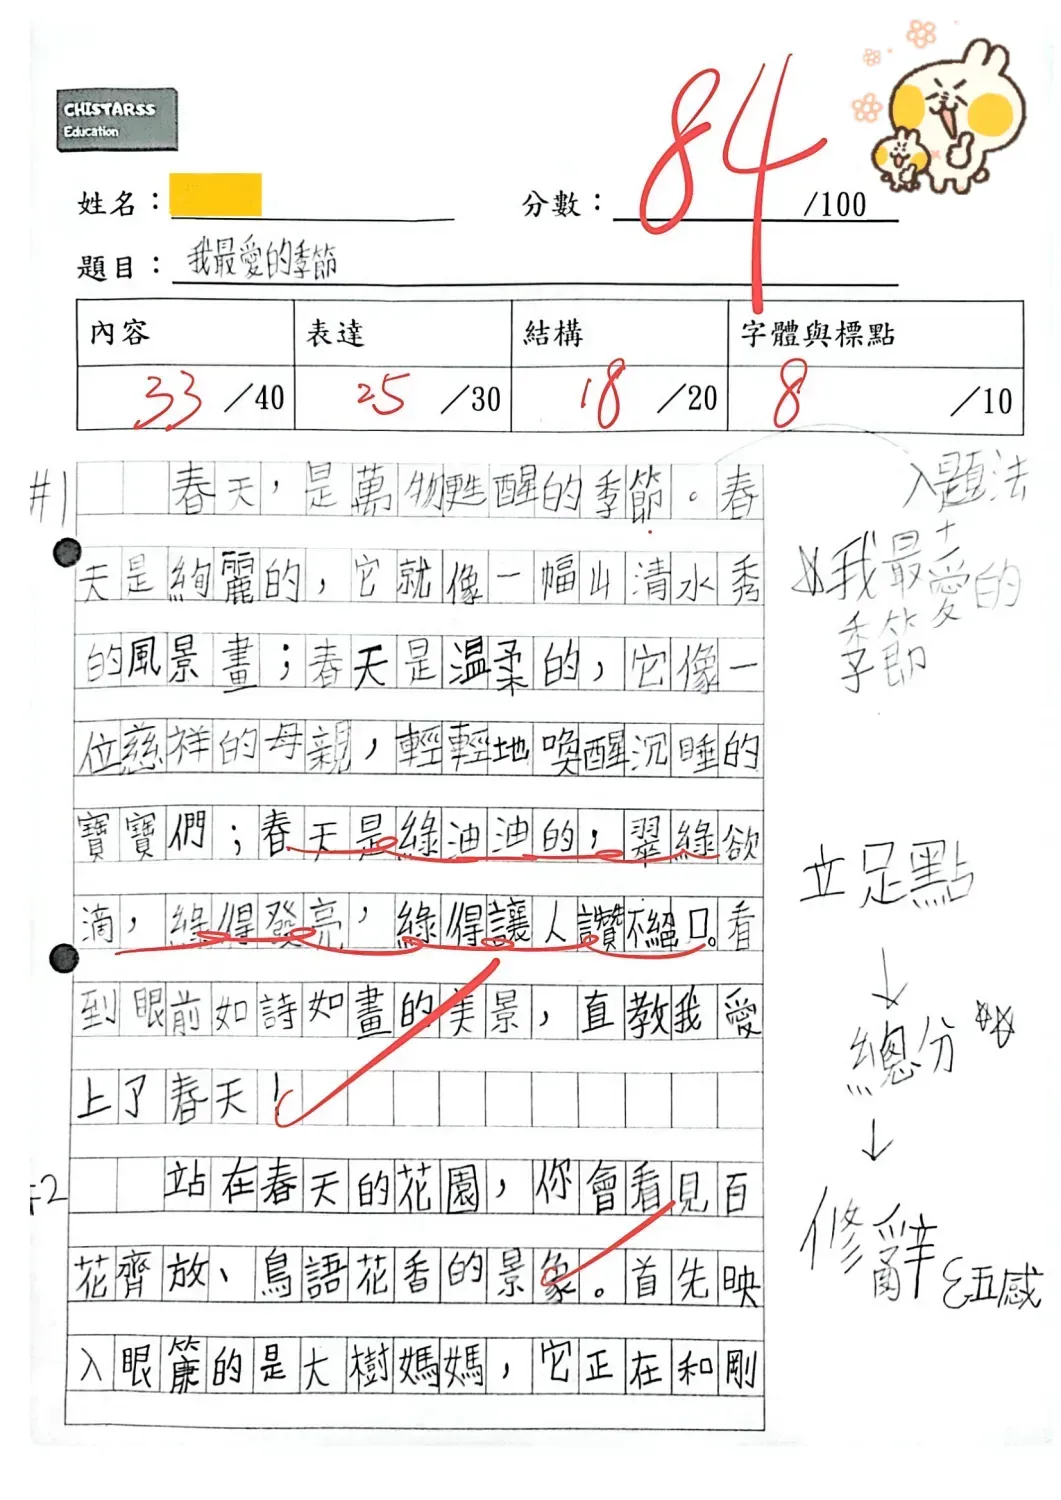 CHISTARSS
Education
84
姓名：
分數： /100
題目： 我最愛的季節
內容 表達 結構 字體與標點
33 /40 25 /30 18 /20 8 /10
#1
春天，是萬物甦醒的季節。春
天是絢麗的，它就像一幅山清水秀
的風景畫；春天是溫柔的，它像一
位慈祥的母親，輕輕地喚醒沉睡的
寶寶們；春天是綠油油的，翠綠欲
滴，綠得發亮，綠得讓人讚不絕口。看
到眼前如詩如畫的美景，直教我愛
上了春天！
2
站在春天的花園，你會看見百
花齊放、鳥語花香的景象。首先映
入眼簾的是大樹媽媽，它正在和剛
入題法
我最愛的
季節
立足點
↓
總分
↓
修辭
五感